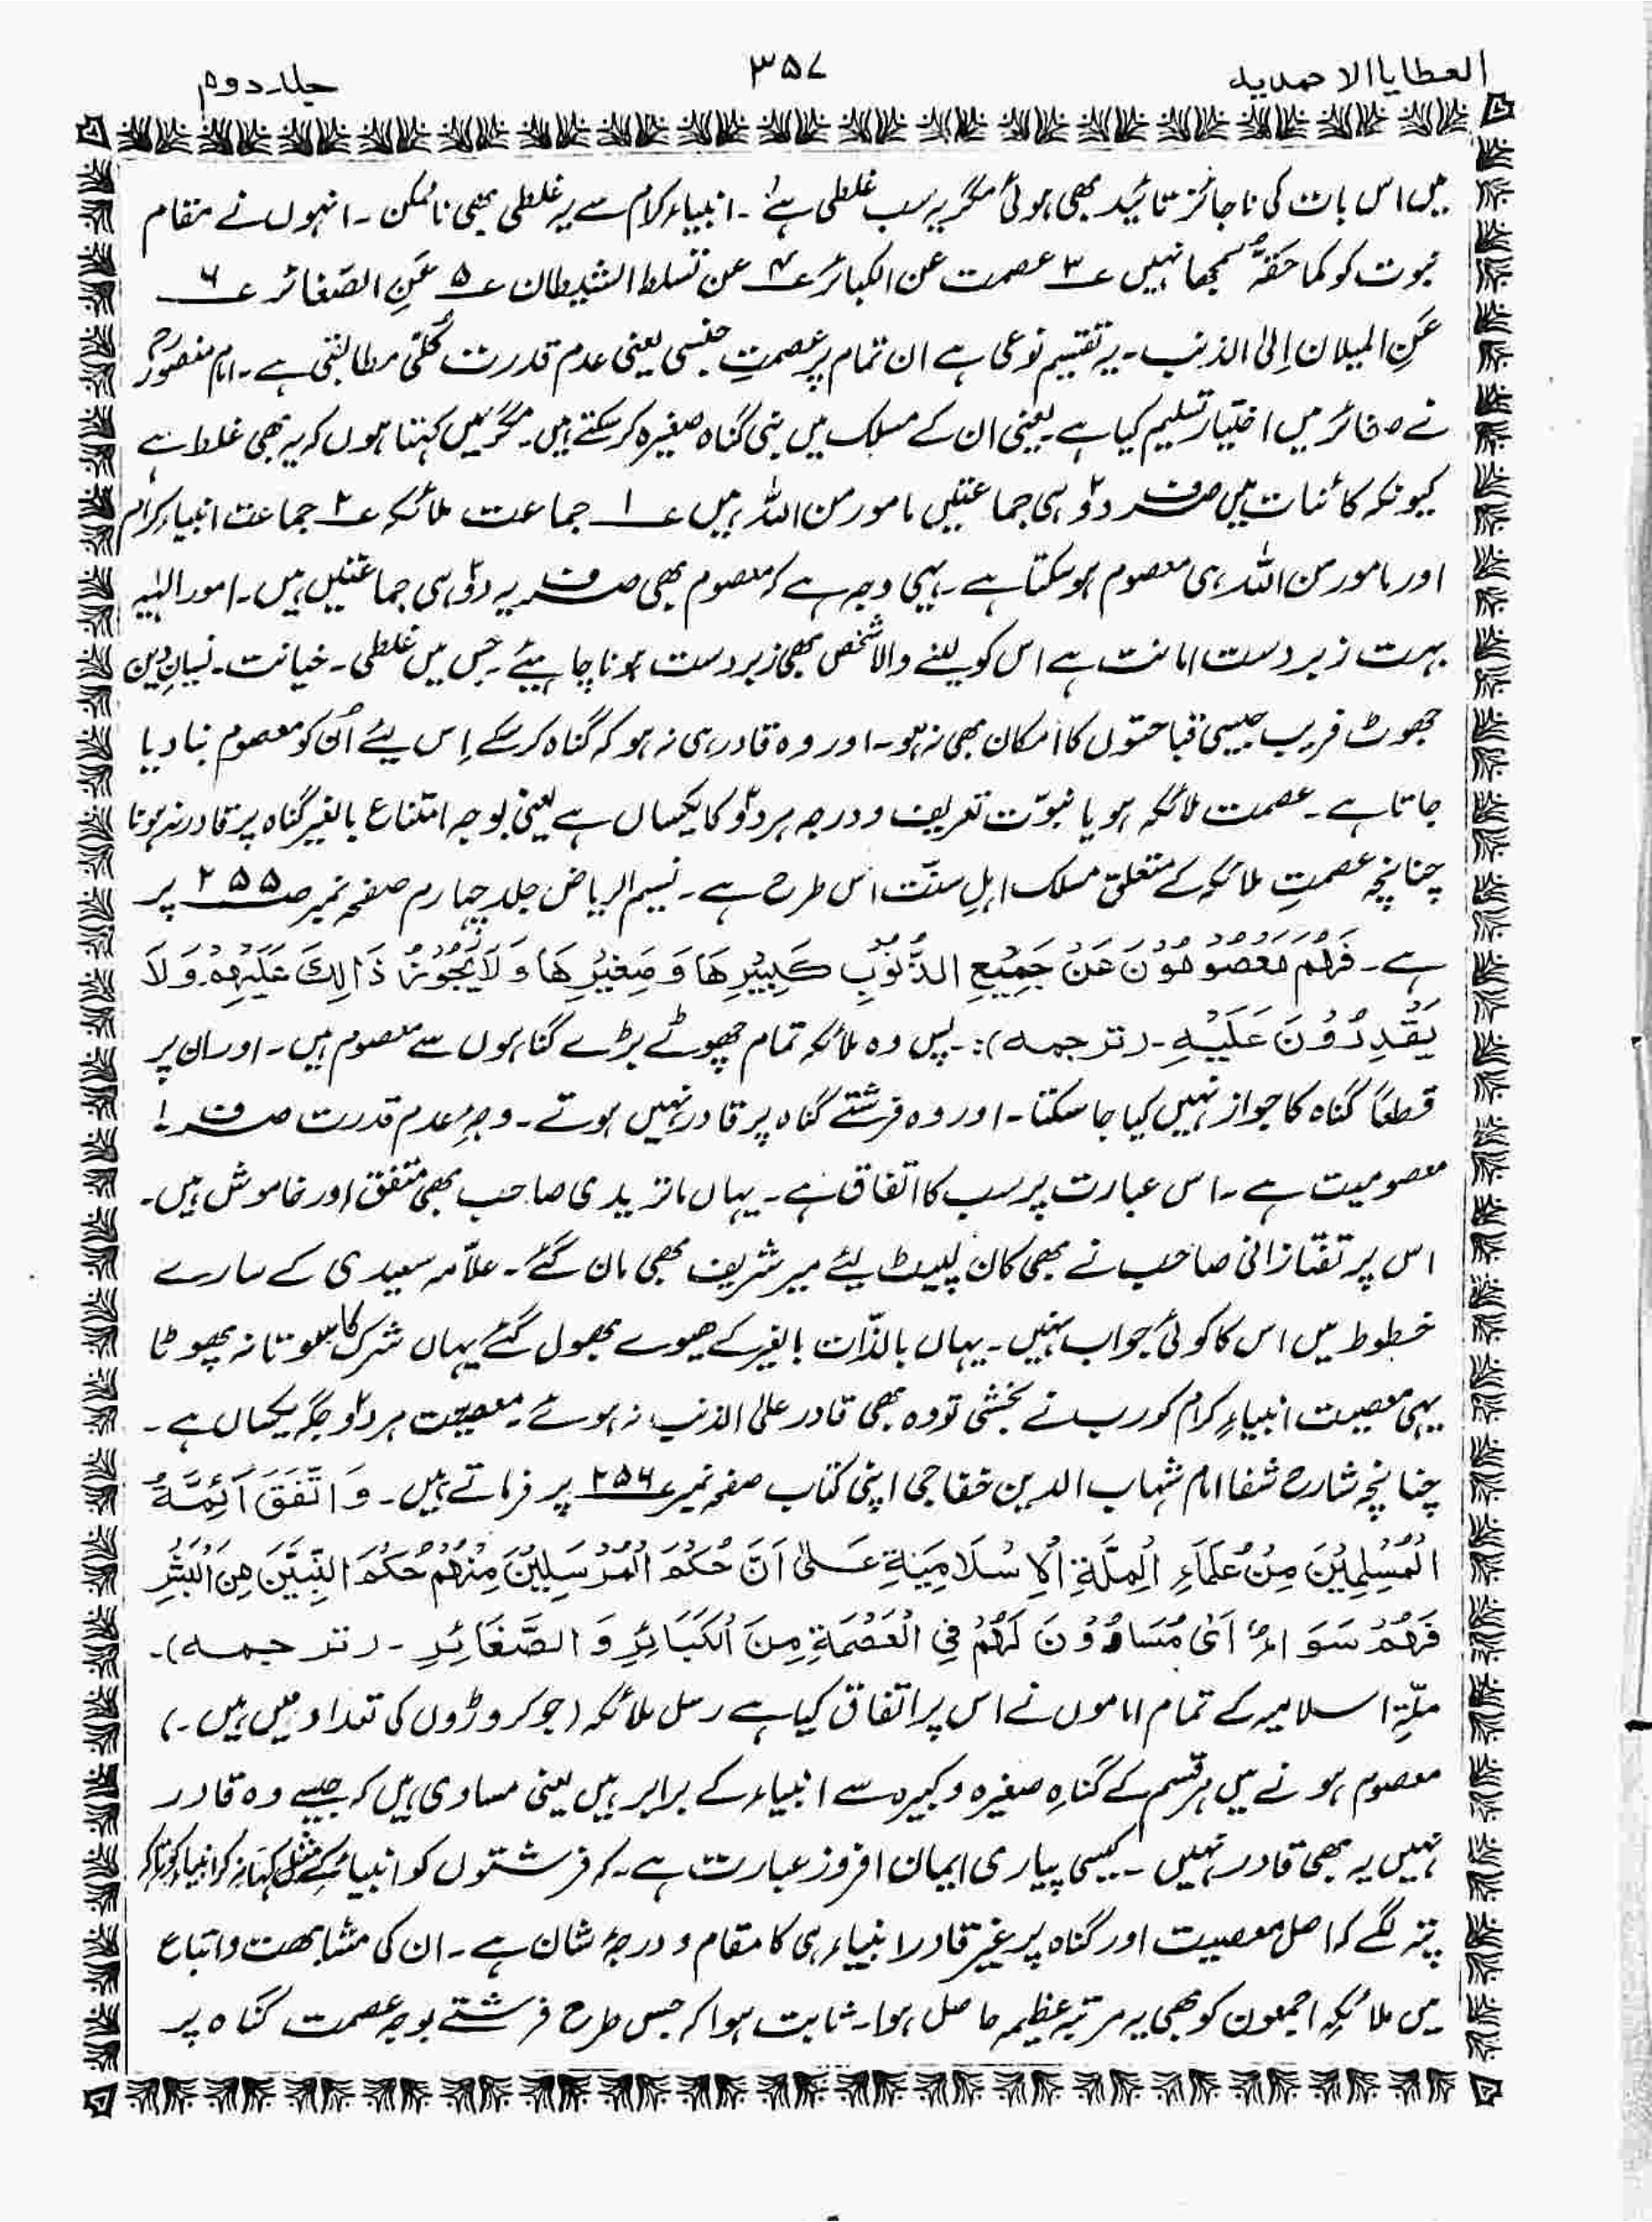 العطایا الاحمدیہ
۳۵۷
جلد دوم
میں اس بات کی ناجائز تائید بھی ہوئی مگر یہ سب غلطی ہے ۔ انبیاء کرام سے یہ غلطی بھی ناممکن ۔ انہوں نے مقام
نبوت کو کما حَقُّہٗ سمجھا نہیں ۳ عصمت عن الکبائر ۴ عن تسلط الشیطان ۵ عَنِ الصَّغائر ۶
عَنِ المیلان اِلیٰ الذنب ۔ یہ تقسیم نوعی ہے ان تمام پر عصمتِ جنسی یعنی عدم قدرت کُلّی مطابقتی ہے ۔ امام منصورؒ
نے صغائر میں اختیار تسلیم کیا ہے یعنی ان کے مسلک میں نبی گناہ صغیرہ کر سکتے ہیں ۔ مگر میں کہتا ہوں کہ یہ بھی غلط ہے
کیونکہ کائنات میں صرف دوؔ ہی جماعتیں مامور من اللہ ہیں ۱ جماعت ملائکہ ۲ جماعت انبیاءِ کرام
اور مامور من اللہ ہی معصوم ہو سکتا ہے ۔ یہی وجہ ہے کہ معصوم بھی صرف یہ دوؔ ہی جماعتیں ہیں ۔ امور الہٰیہ
بہت زبردست امانت ہے اس کو لینے والا شخص بھی زبردست ہونا چاہیئے جس میں غلطی ۔ خیانت ۔ نسیانِ دین
جھوٹ فریب جیسی قباحتوں کا امکان بھی نہ ہو ۔ اور وہ قادر ہی نہ ہو کہ گناہ کر سکے اِس لئے اُن کو معصوم بنا دیا
جاتا ہے ۔ عصمت ملائکہ ہو یا نبوّت تعریف و درجہ ہر دوؔ کا یکساں ہے یعنی بوجہ امتناع بالغیر گناہ پر قادر نہ ہونا
چنانچہ عصمتِ ملائکہ کے متعلق مسلک اہلِ سنّت اس طرح ہے ۔ نسیم الریاض جلد چہارم صفحہ نمبر صـ ۲۵۵ پر
ہے ۔ فَہُم مَعصُومُونَ عَنْ جَمِیْعِ الذُّنُوْبِ کَبِیْرِھَا وَ صَغِیْرِھَا وَ لَا یَجُوْزُ ذَالِکَ عَلَیْہِمْ وَ لَا
یَقْدِرُوْنَ عَلَیْہِ ۔ (ترجمہ) :۔ پس وہ ملائکہ تمام چھوٹے بڑے گناہوں سے معصوم ہیں ۔ اور ان پر
قطعاً گناہ کا جواز نہیں کیا جا سکتا ۔ اور وہ فرشتے گناہ پر قادر نہیں ہوتے ۔ وجہِ عدم قدرت صرف !
معصومیت ہے ۔ اس عبارت پر سب کا اتفاق ہے ۔ یہاں ماتریدی صاحب بھی متفق اور خاموش ہیں ۔
اس پر تفتازانی صاحب نے بھی کان لپیٹ لئے میر شریف بھی مان گئے ۔ علّامہ سعیدی کے سارے
خطوط میں اس کا کوئی جواب نہیں ۔ یہاں بالذّات بالغیر کے جھوٹے بھول گئے یہاں شرک کا بھوتا نہ پھوٹا
یہی معصیت انبیاءِ کرام کو رب نے بخشی تو وہ بھی قادر علی الذنب نہ ہوئے ۔ معصیت ہر دوؔ جگہ یکساں ہے ۔
چنانچہ شارح شفا امام شہاب الدین خفاجی اپنی کتاب صفحہ نمبر ۲۵۶ پر فرماتے ہیں ۔ وَ اتَّفَقَ اَئِمَّۃُ
الْمُسْلِمِیْنَ مِنْ عُلَمَاءِ الْمِلَّۃِ الْاِسْلَامِیَّۃِ عَلیٰ اَنَّ حُکْمَ الْمُرْسَلِیْنَ مِنْہُمْ حُکْمَ النَّبِیِّیْنَ مِنَ الْبَشَرِ
فَہُمْ سَوَاءٌ اَیْ مُسَاوُوْنَ لَہُمْ فِی الْعِصْمَۃِ مِنَ الْکَبَائِرِ وَ الصَّغَائِرِ ۔ (ترجمہ) ۔
ملّتِ اسلامیہ کے تمام اماموں نے اس پر اتفاق کیا ہے رسل ملائکہ (جو کروڑوں کی تعداد میں ہیں ۔)
معصوم ہونے میں ہر قسم کے گناہِ صغیرہ و کبیرہ سے انبیاء کے برابر ہیں یعنی مساوی ہیں کہ جیسے وہ قادر
نہیں یہ بھی قادر نہیں ۔ کیسی پیاری ایمان افروز عبارت ہے ۔ کہ فرشتوں کو انبیاء کے مثل کہا نہ کہ انبیاء کو تاکہ
پتہ لگے کہ اصل معصیت اور گناہ پر غیر قادر انبیاء ہی کا مقام و درجۂ شان ہے ۔ ان کی مشابہت و اتباع
میں ملائکہ اجمعون کو بھی یہ مرتبہ عظیمہ حاصل ہوا ۔ ثابت ہوا کہ جس طرح فرشتے بوجہ عصمت گناہ پر